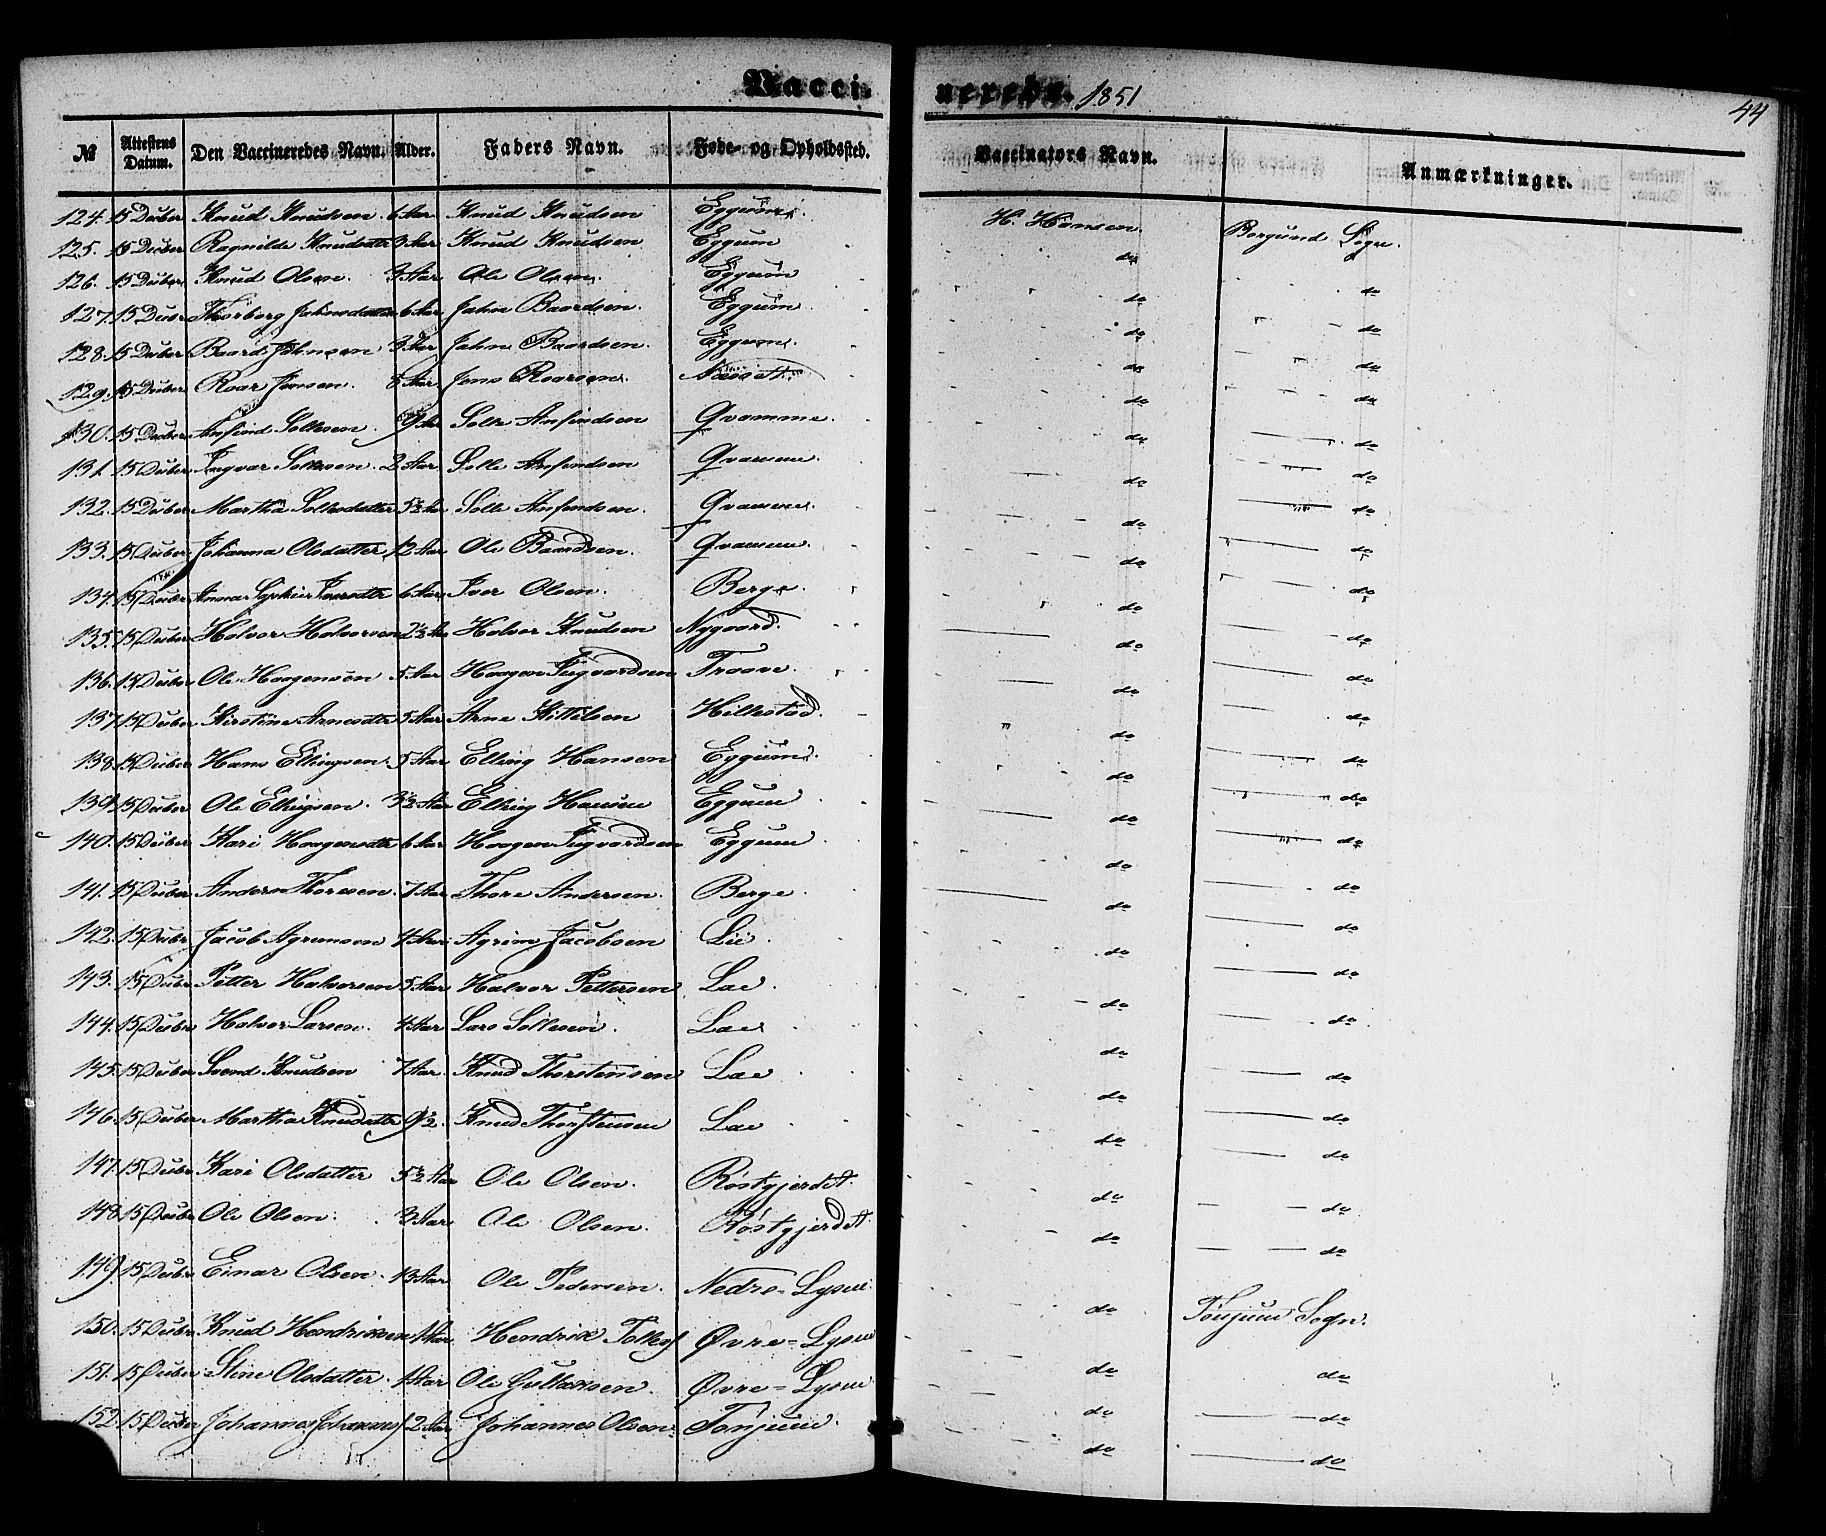 Vaccinerede. 1851
44
№ Attestens Datum. Den Vaccineredes Navn. Alder. Faders Navn. Føde- og Opholdssted. Vaccinators Navn. Anmærkninger.
124. 15 Decber Knud Knudsen. 6 Aar Knud Knudsen Eggum. H. Hansen. Borgund Sogn.
125. 15 Decber Ragnilde Knudsdtr 3 Aar Knud Knudsen Eggum do do
126. 15 Decber Knud Olsen. 3 Aar Ole Olsen. Eggum do do
127. 15 Decber Thorborg Jahnsdatter 6 Aar Jahn Baardsen. Eggum. do do
128. 15 Decber Baard Jahnsen 3 Aar Jahn Baardsen. Eggum. do do
129. 15 Decber Roar Jensen. 8 Aar Jens Roarsen. Næset. do do
130. 15 Decber Anfind Solvesen. 9 Aar Solve Anfindsen Qvamme. do do
131. 15 Decber Ingvar Solvesen. 2 Aar Solve Anfindsen Qvamme. do do
132. 15 Decber Martha Solvesdatter 5½ Aar Solve Anfindsen. Qvamme. do do
133. 15 Decber Johanna Olsdatter 12 Aar Ole Baardsen. Qvamme do do
134. 15 Decber Anna Iversdtr 6 Aar Iver Olsen. Berge. do do
135. 15 Decber Halvor Halvorsen 2½ Aar Halvor Knudsen Nygaard. do do
136. 15 Decber Ole Haagensen 5 Aar Haagen Sigvardsen Traave. do do
137. 15 Decber Kirstine Arnesdtr 5 Aar Arne Kittelsen Hillestad. do do
138. 15 Decber Hans Ellingsen. 5 Aar Elling Hansen Eggum. do do
139. 15 Decber Ole Ellingsen. 3½ Aar Elling Hansen Eggum do do
140. 15 Decber Kari Haagensdtr 6 Aar Haagen Sigvardsen Eggum do do
141. 15 Decber Anders Thoresen. 7 Aar Thore Andersen. Berge do do
142. 15 Decbr Jacob Agrimsen 4 Aar Agrim Jacobsen Lii. do do
143. 15 Decbr Petter Halvorsen 5 Aar Halvor Pettersen Lae. do do
144. 15 Decber Halvor Larsen. 4 Aar Lars Solvesen. Lae do do
145. 15 Decber Svend Knudsen 7 Aar. Knud Thorstensen Lae do do
146. 15 Decber Martha Knudsdtr 9½ Knud Thorstensen Lae do do
147. 15 Decbr Kari Olsdatter 5½ Aar Ole Olsen. Røstgjerdet. do do
148. 15 Decbr Ole Olsen. 3 Aar Ole Olsen. Røstgjerdet. do do
149. 15 Decbr Einar Olsen. 13 Aar Ole Pedersen. Nedre=Lysne. do do
150. 15 Decbr Knud Hendriksen 1 Aar Hendrik Øvre=Lysne do Tønjum Sogn.
151. 15 Decber Stine Olsdatter. 1 Aar Ole Gullaksen. Øvre=Lysne do do
152. 15 Decber Johannes Johannes 2 Aar Johannes Olsen. Tønjum. do do
do do